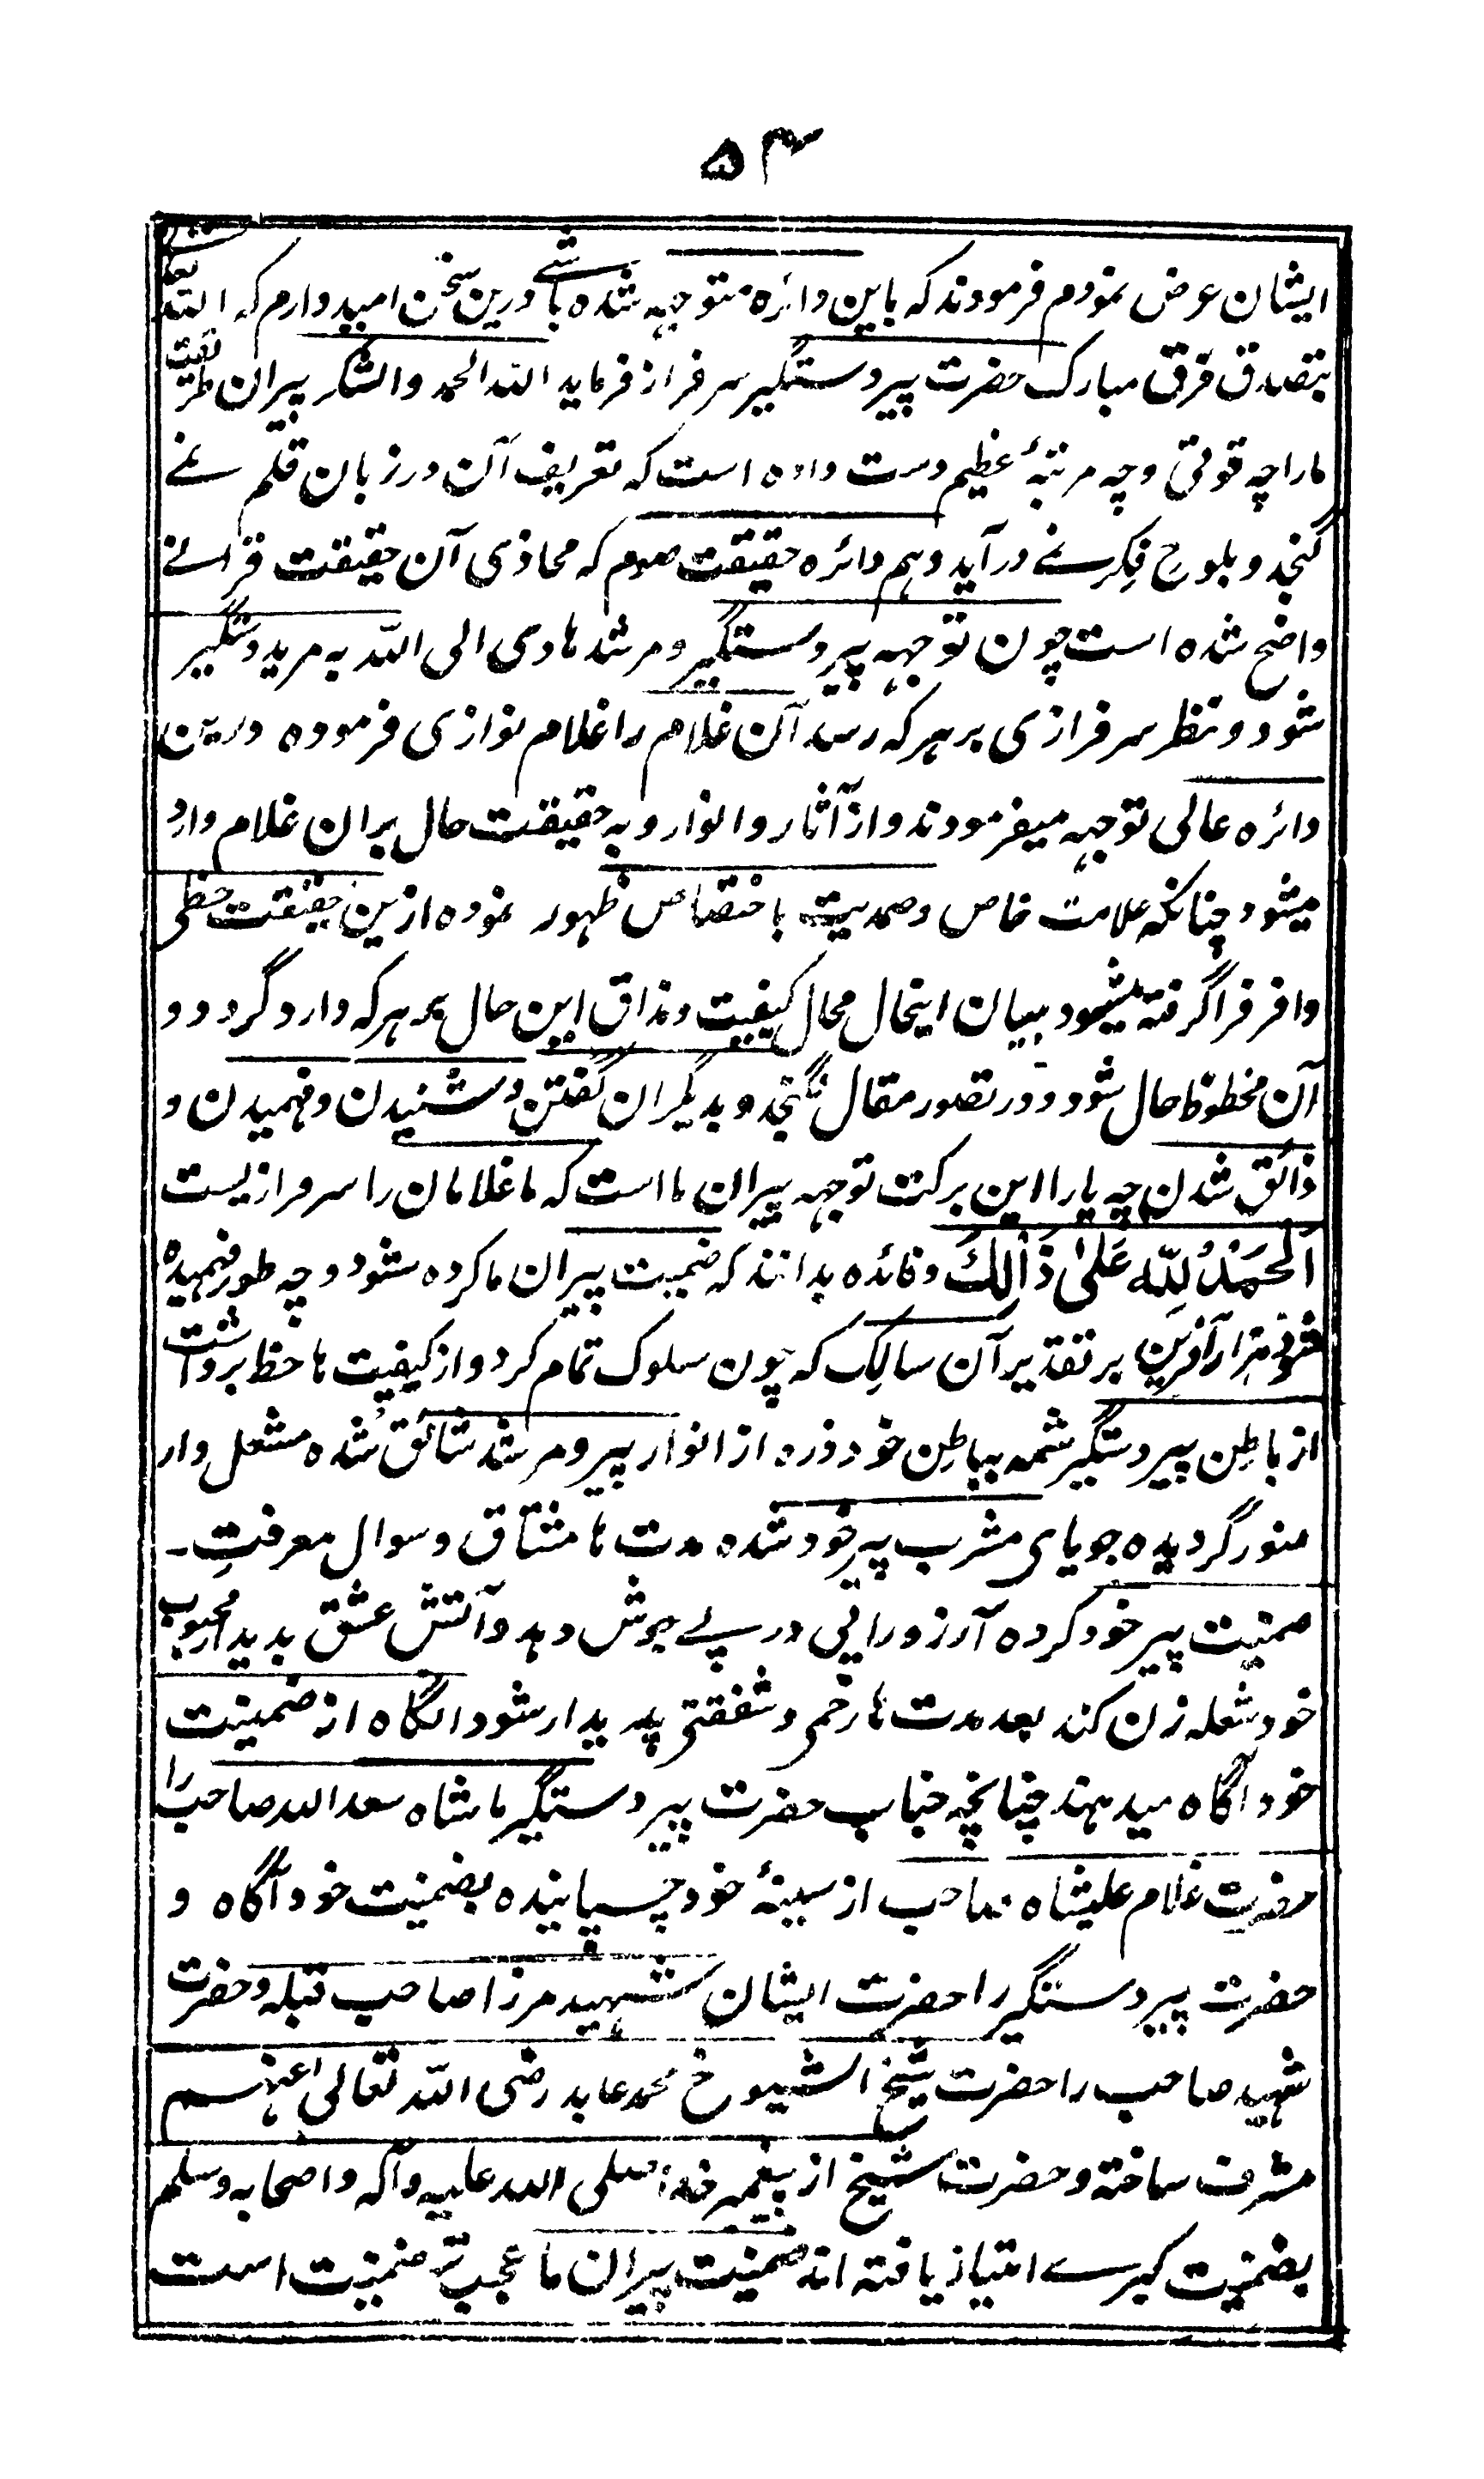 ۵۴
ایشان عرض نمودم فرمودند که باین دائره متوجهه شده باشے درین سخن امیدوارم که الله تعا
بتصدق فرق مبارک حضرت پیر دستگیر سرفراز فرماید الله الحمد والشکر پیران طریقت
مارا چه قوتی و چه مرتبهٔ عظیم دست داده است که تعریف آن در زبان قلم نمے
گنجد و بلوح فکر نمے در آید و هم دائره حقیقت صوم که محاذی آن حقیقت قرانے
واضح شده است چون توجهه پیر دستگیر و مرشد هادی الی الله به مرید دستگیر
شود و بنظر سرفرازی بر هر که رسد آن غلام را غلام نوازی فرموده درین
دائره عالی توجهه میفرمودند و از آثار و انوار و به حقیقت حال بران غلام وارد
میشود چنانکه علامت خاص و صمدیت باختصاص ظهور نموده ازین حقیقت حظی
وافر فرا گرفته میشود بیان اینحال محال کیفیت و مذاق این حال بر هر که وارد گردد و
آن محظوظ حال شود و در تصور مقال نگنجد و بدیگران گفتن و شنیدن و فهمیدن و
ذائق شدن چه یارا این برکت توجهه پیران ما است که ما غلامان را سرفرازیست
اَلحَمْدُ لِلّٰه عَلیٰ ذَالِكَ و فائده بدانند که ضمنیت پیران ما کرده شود و چه طور فهمیده
شود هزار آفرین بر تقدیر آن سالِک که چون سلوک تمام کرد و از کیفیت ها حظ برداشت
از باطِن پیر دستگیر شمه بباطِن خود ذره از انوار پیر و مرشد شائق شده مشعل وار
منور گردیده جویای مشرب پیر خود شده مدت ها مشتاق و سوال معرفت۔
ضمنیت پیر خود کرده آرزو رانی در پے جوش دهد و آتش عشق بدیدار محبوب
خود شعله زن کند بعد مدت ها رخمی و شفقتی پدیدار شود انگاه از ضمنیت
خود آگاه میدهند چنانچه جناب حضرت پیر دستگیر ما شاه سعد الله صاحب را
حضرت غلام علیشاه صاحب از سینهٔ خود چسپانیده بضمنیت خود آگاه و
حضرت پیر دستگیر را حضرت ایشان شهید مرزا صاحب قبله و حضرت
شهید صاحب را حضرت شیخ الشیوخ محمد عابد رضی الله تعالی عنهم
مشرف ساخته و حضرت شیخ از پیغمبر خدا صلی الله علیه و آله و اصحابه وسلم
بضمنیت کبرے امتیاز یافته اند ضمنیت پیران ما عجب تر ضمنیت است